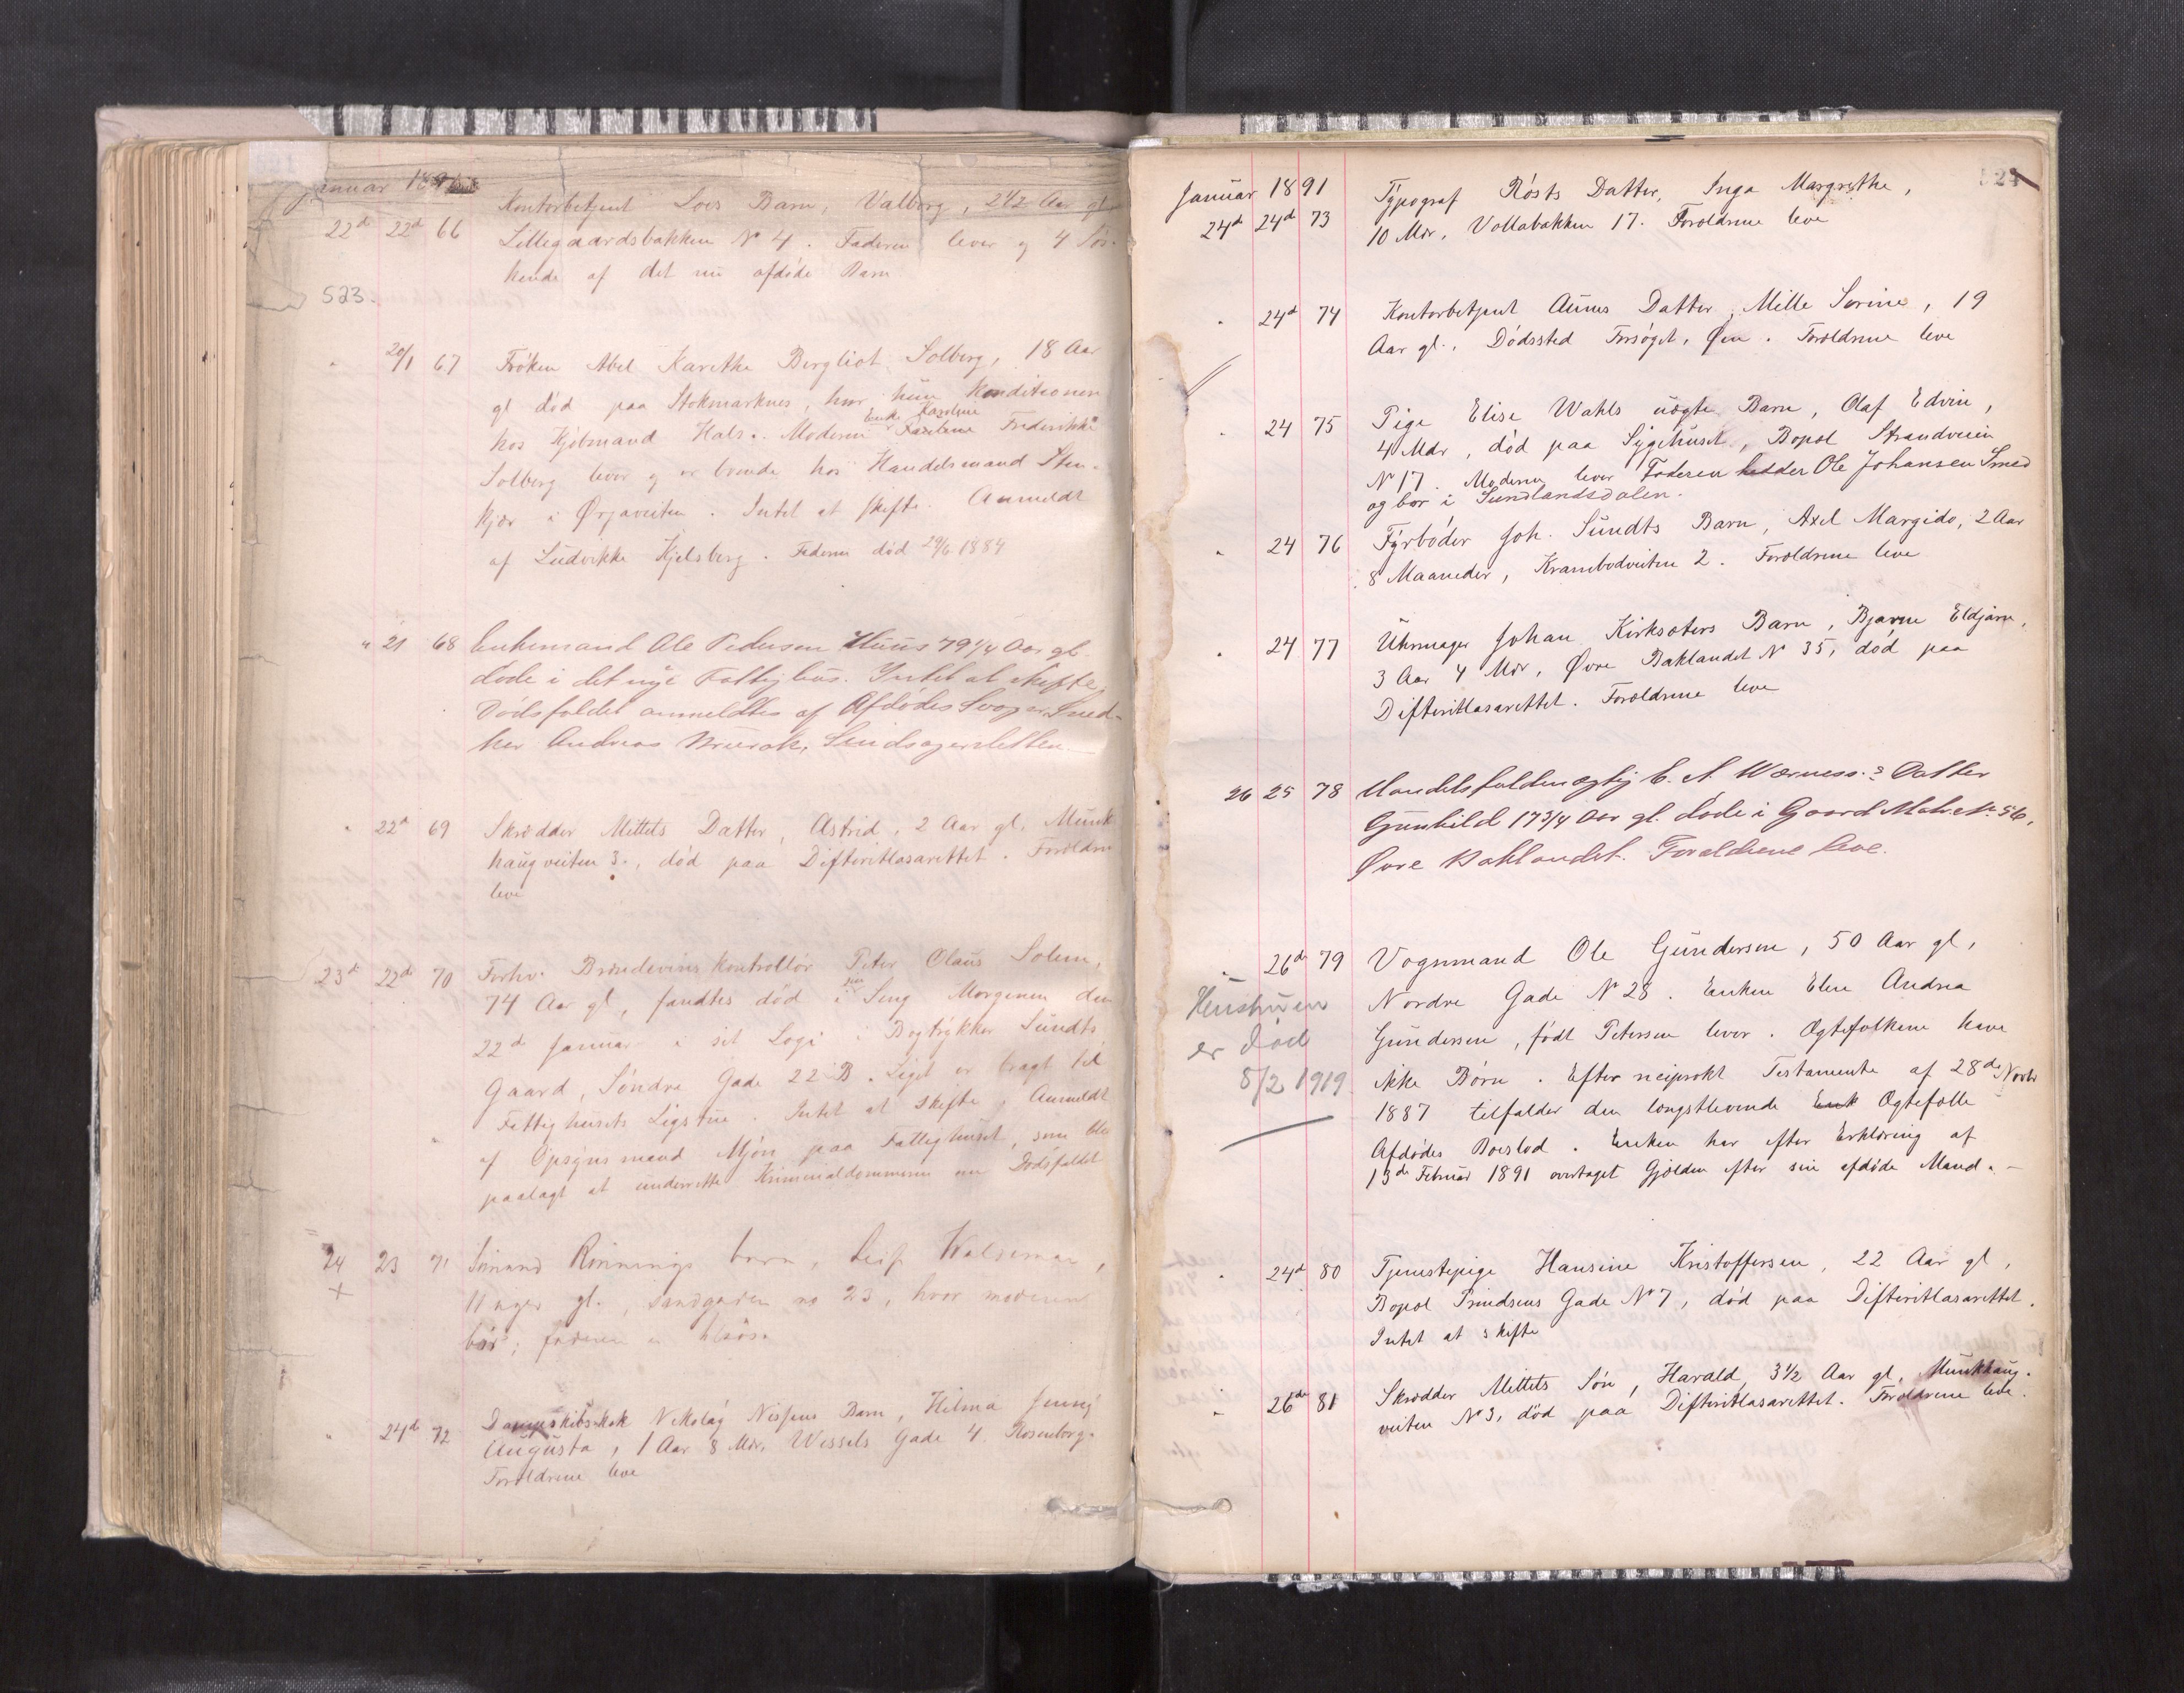 Januar 1891
22d 22d 66 Kontorbetjent Loes Barn, Valborg, 2 1/2 Aar gl
Lillegaardsbakken No 4. Faderen lever og 4 Søs-
kende af det nu afdøde Barn
523.
" 20/1 67 Frøken Abel Karethe Bergliot Solberg, 18 Aar
gl død paa Stokmarknes, hvor hun konditionerer
hos Kjøbmand Hals. Moderen Enke Karoline Frederikke
Solberg lever og er boende hos Handelsmand Sten-
kjær i Ørjaveiten. Intet at skifte. Anmeldt
af Ludvikke Kjelsberg. Faderen død 29/6 1884
" 21 68 Enkemand Ole Pedersen Huus 79 1/4 Aar gl.
døde i det nye Fattighus. Intet at skifte.
Dødsfaldet anmeldtes af Afdødes Svoger Sned-
ker Andreas Bruråk, Sindsagersletten.
" 22d 69 Skrædder Mittets Datter, Astrid, 2 Aar gl. Munk
haugveiten 3., død paa Difteritlasarettet. Forældrene
leve
23d 22de 70 Forhv. Brændevinskontrollør Peter Olaus Solem,
74 Aar gl, fandtes død i sin Seng Morgenen den
22d Januar i sit Logi i Bogtrykker Sundts
Gaard, Søndre Gade 22 B. Liget er bragt til
Fattighusets Ligstue. Intet at skifte. Anmeldt
af Opsynsmand Mjøn paa Fattighuset, som blev
paalagt at underrette Kriminaldommeren om Dødsfaldet
24 23 71 Sømand Rønnings barn, Leif Waldemar,
11 uger gl., Sandgaden no 23, hvor moderen
bor; faderen er tilsøs.
" 24d 72 Dampskibskok Nikolay Nissens Barn, Hilma Jenny
Augusta, 1 Aar 8 Mdr. Wessels Gade 4, Rosenborg.
Forældrene leve
524
Januar 1891
24d 24d 73 Typograf Røsts Datter, Inga Margrethe,
10 Mdr, Vollabakken 17. Forældrene leve
" 24d 74 Kontorbetjent Aunes Datter, Mille Sorine, 19
Aar gl., Dødssted Forsøget, Øen. Forældrene leve
" 24 75 Pige Elise Wahls uægte Barn, Olaf Edvin,
4 Mdr, død paa Sygehuset, Bopæl Strandveien
No 17. Moderen lever Faderen hedder Ole Johansen Smed
og bor i Sundlandsdalen.
" 24 76 Fyrbøder Joh. Sundts Barn, Axel Margido, 2 Aar
8 Maaneder, Krambodveiten 2. Forældrene leve
" 24 77 Uhrmager Johan Kirksæters Barn, Bjarne Eldjarn,
3 Aar 4 Mdr, Øvre Baklandet No 35, død paa
Difteritlasarettet. Forældrene leve
26 25 78 Handelsfuldmægtig E. A. Wærness.s Datter
Gunhild 17 3/4 Aar gl. døde i Gaard Matr. No 56,
Øvre Baklandet. Forældrene leve.
" 26de 79 Vognmand Ole Gundersen, 50 Aar gl,
Nordre Gade No 28. Enken Elen Andrea
Gundersen, født Petersen lever. Ægtefolkene have
ikke Børn. Efter reciprokt Testamente af 28de Novbr
1887 tilfalder den længstlevende Enk Ægtefælle
Afdødes Boeslod. Enken har efter Erklæring af
13de Februar 1891 overtaget Gjælden efter sin afdøde Mand.
Hustruen
er død
8/2 1919
" 24d 80 Tjenestepige Hansine Kristoffersen, 22 Aar gl,
Bopæl Prindsens Gade No 7, død paa Difteritlasarettet.
Intet at skifte
" 26de 81 Skrædder Mittets Søn, Harald, 3 1/2 Aar gl, Munkhaug-
veiten No 3, død paa Difteritlasarettet. Forældrene leve.